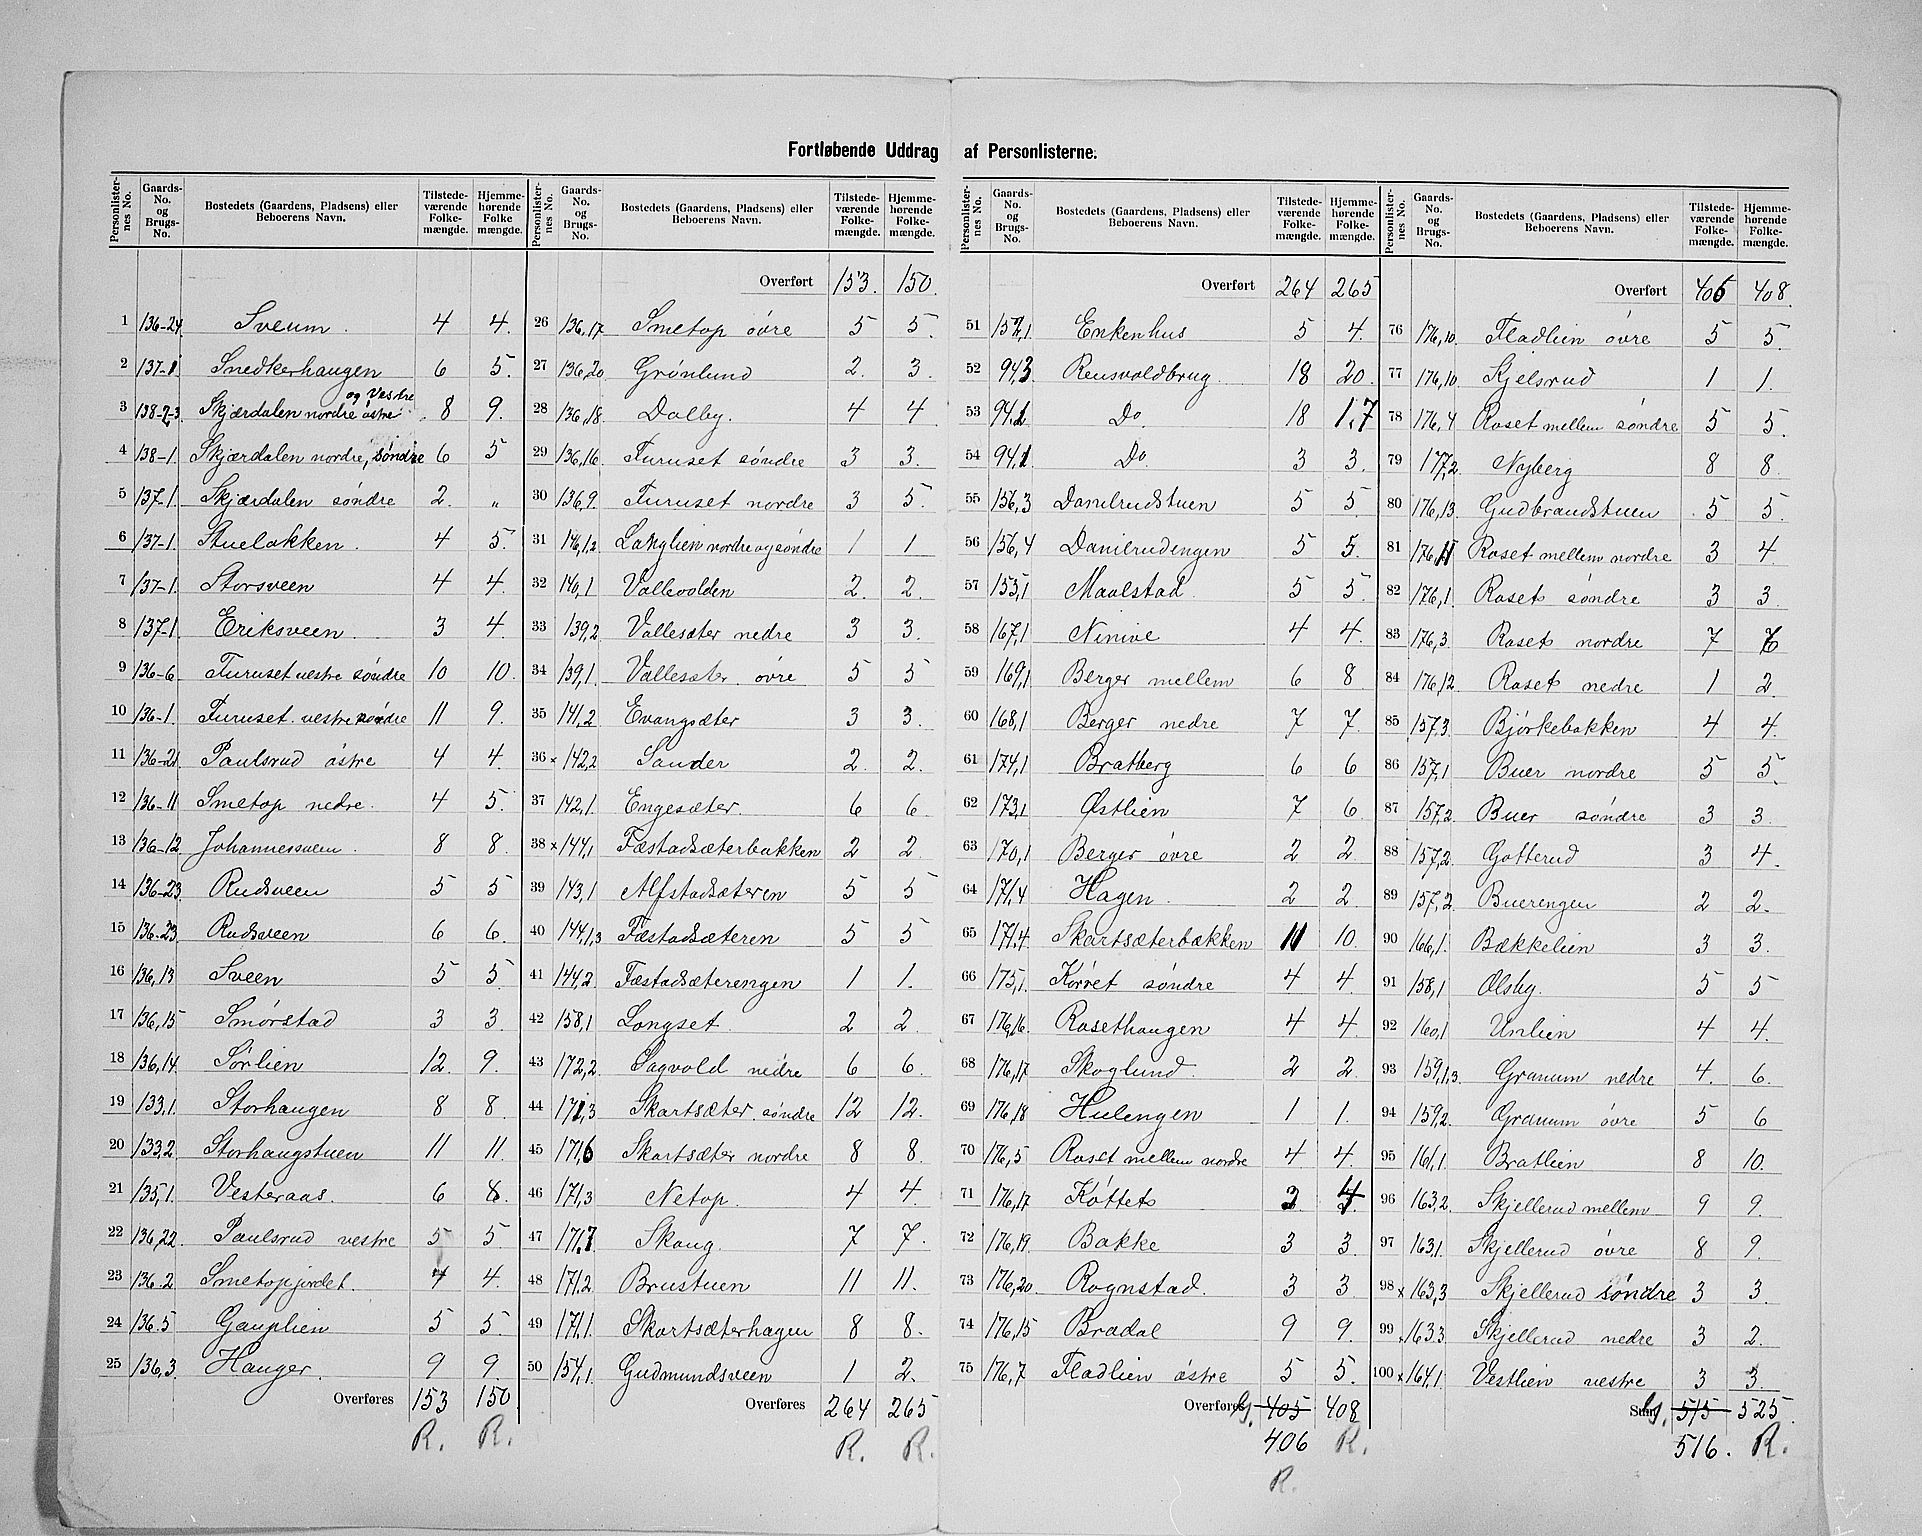 Fortløbende Uddrag af Personlisterne.
Personlister-nes No. | Gaards-No. og Brugs-No. | Bostedets (Gaardens, Pladsens) eller Beboerens Navn. | Tilstede-værende Folke-mængde. | Hjemme-hørende Folke-mængde.
1 136-24 Sveum. 4 4.
2 137-1 Snedkerhaugen 6 5.
3 138-2-3 Skjærdalen nordre østre og Vestre 8 9.
4 138-1. Skjærdalen nordre, søndre 6 5
5 137-1. Skjærdalen søndre 2. „
6 137-1. Stueløkken. 4 5.
7 137-1. Storsveen 4 4.
8 137-1 Eriksveen. 3 4.
9 136-6 Furuset vestre søndre 10 10.
10 136-1. Furuset vestre nordre 11 9.
11 136-21 Paulsrud østre 4 4.
12 136-11 Smetop nedre. 4 5.
13 136-12 Johannessveen. 8 8.
14 136-23 Rudsveen 5 5
15 136-23 Rudsveen 6 6.
16 136,13 Sveen 5 5.
17 136,15 Smørstad 3 3.
18 136,14. Sørlien 12. 9.
19 133,1. Storhaugen 8 8.
20 133,2 Storhaugstuen 11 11.
21 135,1. Vesteraas. 6 8.
22 136,22. Paulsrud vestre 5 5.
23 136.2 Smetopjordet. 4 4.
24 136.5 Gauplien 5 5.
25 136,3 Hauger. 9 9.
Overføres 153 150
R. R.
Overført 153. 150.
26 136,17 Smetop øvre 5 5.
27 136,20. Grønlund 2. 3.
28 136,18. Dalby. 4 4
29 136,16 Furuset søndre 3 3.
30 136,9. Furuset nordre 3 5.
31 146,1,2 Langlien nordre og søndre 1 1
32 140,1 Vallevolden 2. 2.
33 139,2 Vallesæter nedre 3 3.
34 139,1. Vallesæter øvre 5 5
35 141,2 Evangsæter 3 3.
36 × 142,2 Sander 2. 2.
37 142,1. Engesæter. 6 6
38 × 144,1 Fæstadsæterbakken 2 2
39 143,1 Alfstadsæteren 5 5
40 144,1,3 Fæstadsæteren 5 5
41 144,2 Fæstadsæterengen 1 1.
42 158,1 Longset 2 2.
43 172,2 Sagvold nedre 6 6.
44 171,3 Skartsæter søndre 12 12.
45 171,6 Skartsæter nordre 8 8.
46 171.3 Netop. 4 4.
47 171.7 Skaug. 7 7.
48 171.2 Brustuen 11 11.
49 171.1. Skartsæterhagen 8 8.
50 154,1. Gudmundsveen 1 2.
Overføres 264 265
R. R.
Overført 264 265
51 152,1 Enkenhus 5 4.
52 94,3 Rensvoldbrug. 18 20.
53 94,2 Do. 18 17
54 94,1 Do 3 3.
55 156,3 Danilrudstuen 5 5
56 156,4 Danilrudengen 5 5.
57 155,1 Maalstad 5 5.
58 167,1 Ninive 4 4.
59 169,1 Berger mellem 6 8
60 168,1 Berger nedre 7 7.
61 174,1 Bratberg 6 6
62 173,1 Østlien 7 6
63 170,1 Berger øvre 2 2
64 171,4 Hagen. 2 2
65 171.4. Skartsæterbakken 11 10.
66 175,1. Korret søndre 4 4.
67 176,16. Rosethaugen 4 4.
68 176,17 Skoglund. 2 2.
69 176,18 Hulengen 1 1.
70 176,5 Roset mellem nordre 4 4.
71 176,17 Køttet 3 4
72 176,19 Bakke 3 3.
73 176,20. Rognstad. 3 3
74 176,15 Brødal 9 9.
75 176,7 Fladlien østre 5 5.
Overføres 405 408
406 R.
R.
Overført 406 408.
76 176,10. Fladlien øvre 5 5.
77 176,10. Kjelsrud 1 1.
78 176,4 Roset mellem søndre 5 5.
79 177,2 Nyberg 8 8.
80 176,13. Gudbrandstuen 5 5.
81 176,11 Roset mellem nordre 3 4
82 176,1. Roset søndre 3 3.
83 176,3. Roset nordre 7 6
84 176,12. Roset nedre 1 2
85 157,3. Bjørkebakken 4 4.
86 157,1 Buer nordre 5 5.
87 157,2 Buer søndre 3 3.
88 157,2. Gotterud 3 4.
89 157,2 Buerengen 2 2.
90 166,1. Bækkelien 3 3.
91 158,1 Olsby. 5 5
92 160,1 Unlien 4 4.
93 159,1,3. Granum nedre 4. 6.
94 159,2. Granum øvre 5 6
95 161,1. Bratlien 8 10.
96 163,2. Skjellerud mellem 9 9.
97 163,1. Skjellerud øvre 8 9.
98 × 163,3 Skjellerud søndre 3 3.
99 163.3. Skjellerud nedre 3 2.
100 × 164,1. Vestlien vestre 3 3.
Sum 515 525.
516. R.